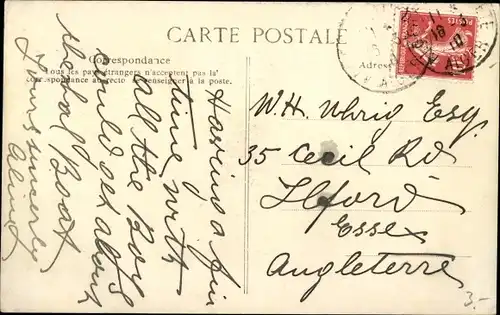 CARTE POSTALE
Correspondance
Tous les pays étrangers n'acceptent pas la
correspondance au recto se renseigner à la poste.
Adres
POSTES
Having a fin
time with
all the Boys
could get along
the ball Boat
Yours sincerely
W.H. Uhrig Esq.
35 Cecil Rd
Ilford
Essex
Angleterre
3.-